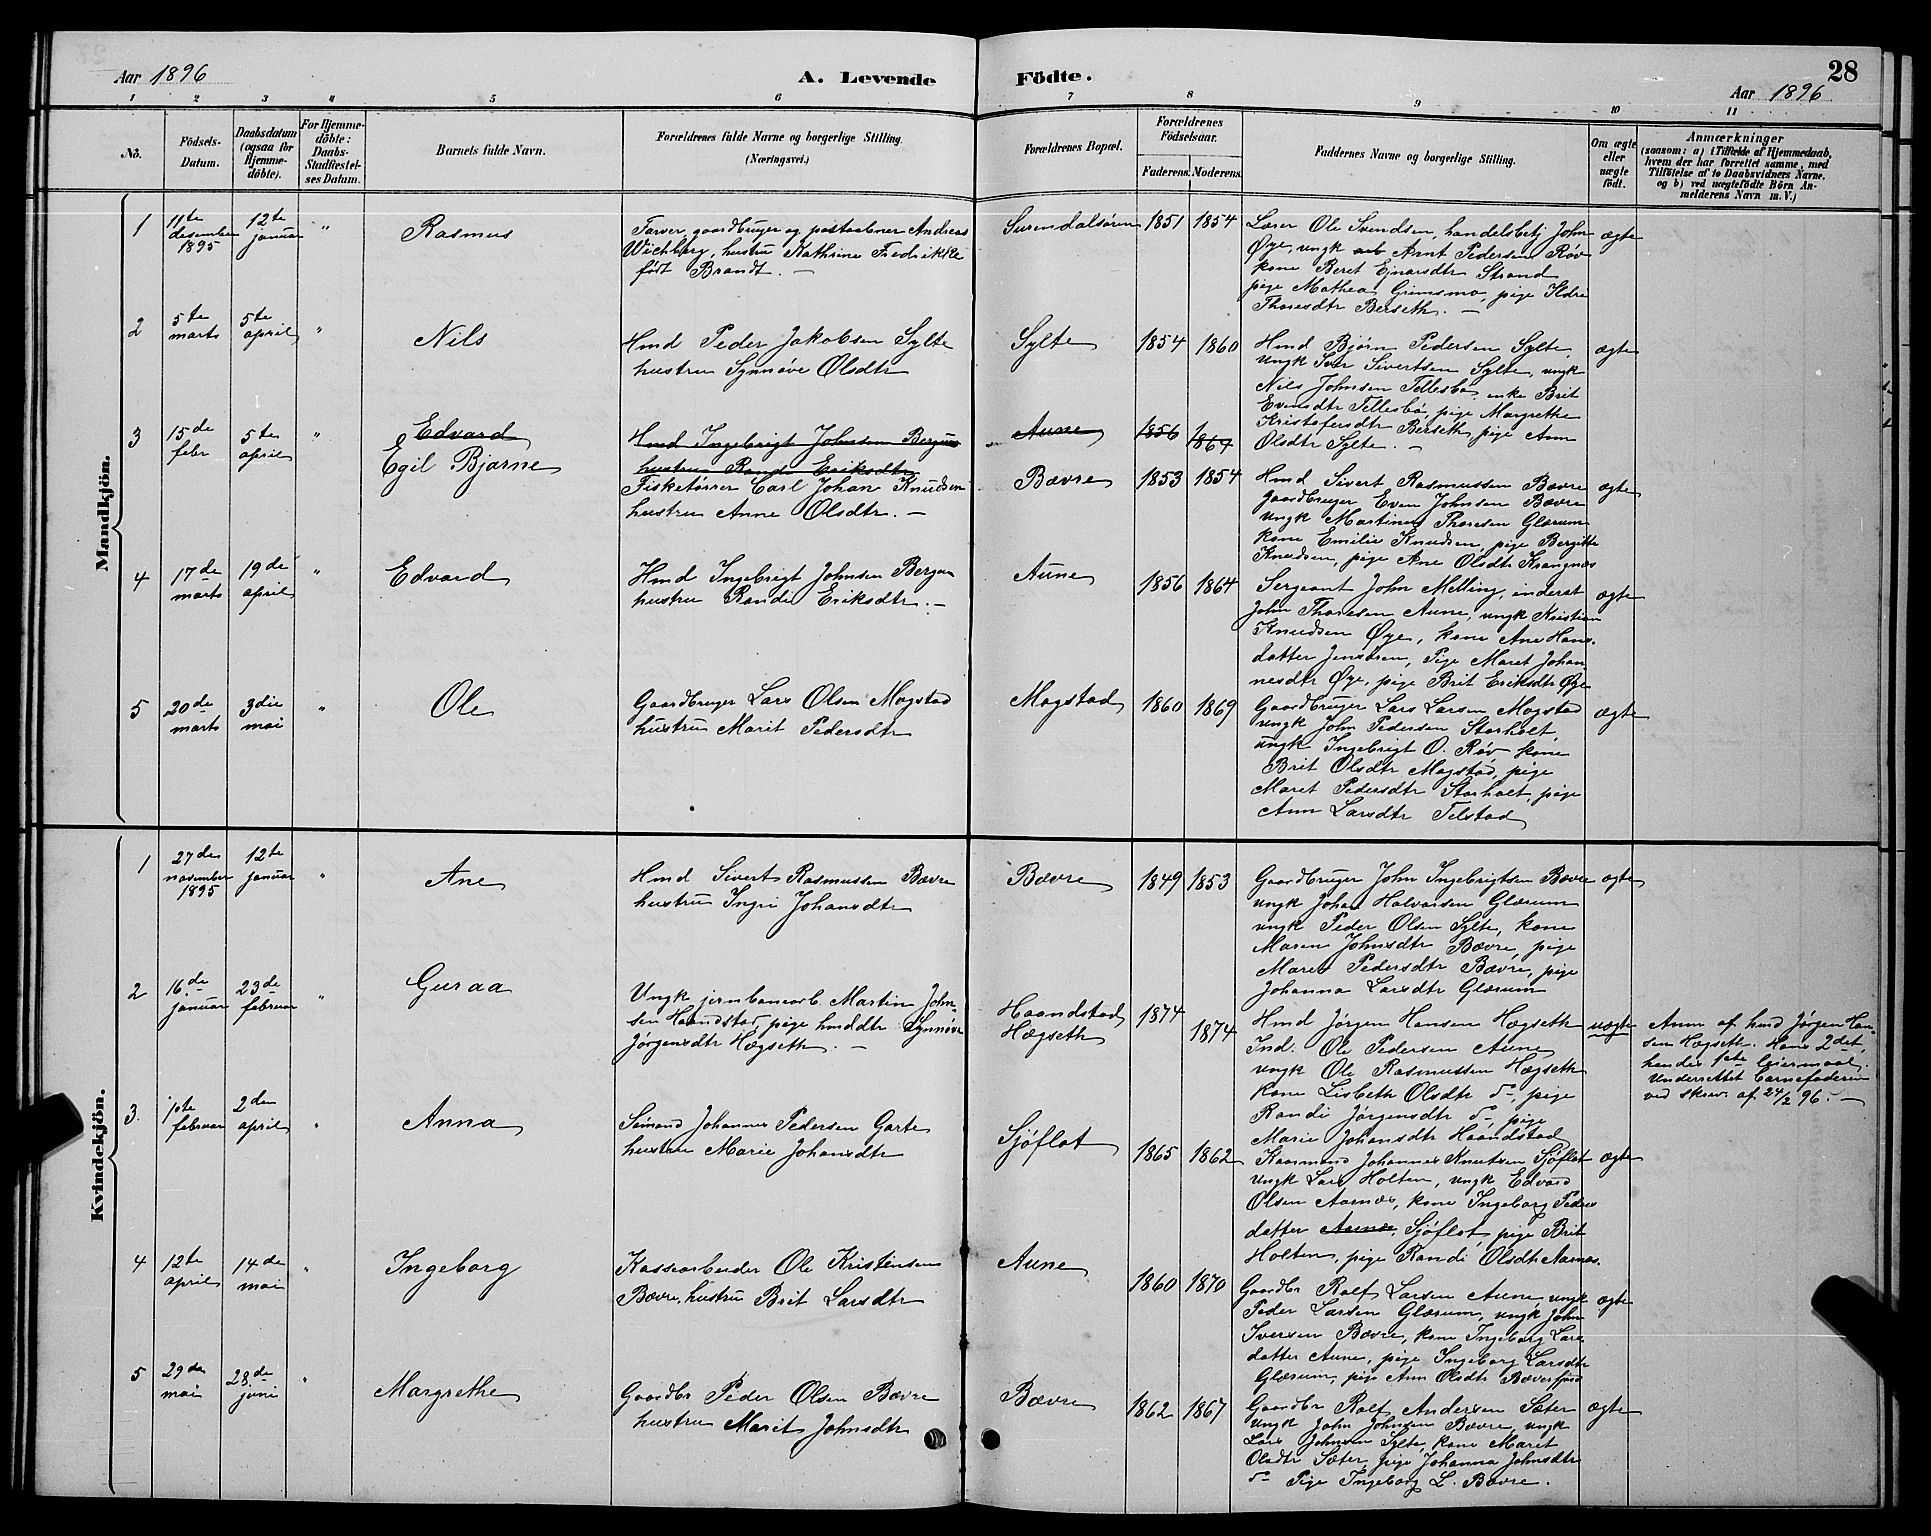 Aar 1896
A. Levende
Födte.
28
Aar 1896
1 2 3 4 5 6 7 8 9 10 11
No.
Födsels-
Datum.
Daabsdatum
(ogsaa for
Hjemme-
döbte).
For Hjemme-
döbte:
Daabs-
Stadfæstel-
ses Datum.
Barnets fulde Navn.
Forældrenes fulde Navne og borgerlige Stilling.
(Næringsvei.)
Forældrenes Bopæl.
Forældrenes
Födselsaar.
Faderens. Moderens.
Faddernes Navne og borgerlige Stilling.
Om ægte
eller
uægte
födt.
Anmærkninger
(saasom: a) i Tilfælde af Hjemmedaab,
hvem der har forrettet samme, med
Tilföielse af to Daabsvidners Navne.
og b) ved uægtefödte Börn An-
melderens Navn m. V.)
Mandkjön.
1
11te
desember
1895
12te
januar
"
Rasmus
Farver, gaardbruger og postaabner Andreas
Wichberg, hustru Kathrine Fredrikke
født Brandt. —
Surendalsøren
1851 1854
Lærer Ole Svendsen, handelsbetj John
Øye, ungk Arnt Pedersen Røv
kone Beret Ejnarsdtr Strand
pige Mathea Grimsmo, pige Ildri
Thoresdtr Berseth. —
ægte
2
5te
marts
5te
april
"
Nils
Hmd Peder Jakobsen Sylte
hustru Synnøve Olsdtr
Sylte
1854 1860
Hmd Bjørn Pedersen Sylte,
ungk Iver Sivertsen Sylte, ungk
Nils Johnsen Tellesbø, enke Brit
Evensdtr Tellesbø, pige Margrethe
Kristofersdtr Berseth, pige Ann
Olsdtr Sylte. —
ægte
3
15de
febr
5te
april
"
Edvard
Egil Bjarne
Hmd Ingebrigt Johnsen Bergun
hustru Randi Eriksdtr
Fisketørrer Carl Johan Knudsen
hustru Anne Olsdtr. —
Aune
Bævre
1856 1864
1853 1854
Hmd Sivert Rasmussen Bævre
Gaardbruger Even Johnsen Bævre
ungk Martinus Thoresen Glærum
kone Emilie Knudsen, pige Bergitte
Knudsen, pige Ane Olsdtr Kvangnes
ægte
4
17de
marts
19de
april
"
Edvard
Hmd Ingebrigt Johnsen Bergun
hustru Randi Eriksdtr. —
Aune
1856 1864
Sergeant John Melling, inderst
John Thoresen Aune, ungk Kristian
Knudsen Øye, kone Ane Hans-
datter Jenstøen, Pige Maret Johan-
nesdtr Øye, pige Brit Eriksdtr Øye
ægte
5
20de
marts
3die
mai
"
Ole
Gaardbruger Lars Olsen Mogstad
hustru Marit Pedersdtr
Mogstad
1860 1869
Gaardbruger Lars Larsen Mogstad
ungk John Pedersen Storholt,
ungk Ingebrigt O. Røv kone
Brit Olsdtr Mogstad, pige
Maret Pedersdtr Storholt, pige
Ann Larsdtr Telstad
ægte
Kvindekjön.
1
27de
november
1895
12te
januar
"
Ane
Hmd Sivert Rasmussen Bævre
hustru Ingri Johansdtr
Bævre
1849 1853
Gaardbruger John Ingebrigtsen Bævre
ungk Johan Halvorsen Glærum
ungk Peder Olsen Sylte, kone
Maren Johnsdtr Bævre, pige
Maret Pedersdtr Bævre, pige
Johanna Larsdtr Glærum
ægte
2
16de
januar
23de
februar
"
Guraa
Ungk jernbanearb. Martin John-
sen Haandstad, pige hmddtr Synnøve
Jørgensdtr Hægseth. —
Haandstad
Hægseth
1874
1874
Hmd Jørgen Hansen Hægseth
Ind. Ole Pedersen Aune
ungk Ole Rasmussen Hægseth
kone Lisbeth Olsdtr d-, pige
Randi Jørgensdtr d-, pige
Marie Johansdtr Haandstad
uægte
Anm af hmd Jørgen Han-
sen Hægseth. Hans 2det,
hendes 1ste Leiermaal.
Underrettet barnefaderen
ved skriv. af 24/2 96. —
3.
1ste
februar
2den
april
"
Anna
Sømand Johannes Pedersen Garte
hustru Marie Johansdtr
Sjøflot
1865 1862
Kaarmand Johannes Knutsen Sjøflot
ungk Lars Holten, ungk Edvard
Olsen Aarnes, kone Ingeborg Peders
datter Aune, Sjøflot, pige Brit
Holten, pige Randi Olsdtr Aarnes.
ægte
4
12te
april
14de
mai
"
Ingeborg
Kassearbeider Ole Kristensen
Bævre, hustru Brit Larsdtr
Aune
1860 1870
Gaardbr Rolf Larsen Aune ungk
Peder Larsen Glærum, ungk John
Iversen Bævre, kone Ingeborg Lars
datter Aune, pige Ingeborg Larsdtr
Glærum, pige Ann Olsdtr Bæverfjord
ægte
5
29de
mai
28de
juni
"
Margrethe
Gaardbr Peder Olsen Bævre
hustru Marit Johnsdtr
Bævre
1862 1867
Gaardbr Rolf Andersen Sæter
ungk John Johnsen Bævre, ungk
Lars Johnsen Sylte, kone Maret
Olsdtr Sæter, pige Johanna Johnsdtr
d- Pige Ingeborg L. Bævre.
ægte